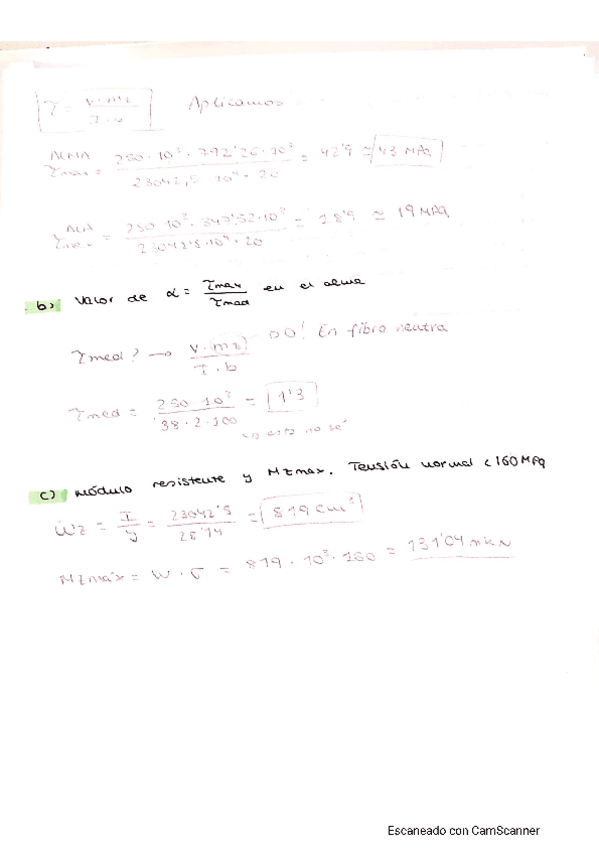 τ = V·mz / I·b Aplicamos
ALMA τmax = 250·10³·792'26·10³ / 23042,5·10⁴·20 = 42'9 ≃ 43 MPa
ALA τmax = 250·10³·347'52·10³ / 23042'5·10⁴·20 = 18'9 ≃ 19 MPa
b) Valor de α = τmax / τmed en el alma
τmed? → V·mz / I·b OJO! En fibra neutra
τmed = 250·10³ / 38·2·100 = 1'3
→ esto no sé
c) Módulo resistente y Mzmax. Tensión normal < 160 MPa
Wz = I / y = 23042'5 / 28'14 = 819 cm³
Mzmáx = W·σ = 819·10³·160 = 131'04 mkN
Escaneado con CamScanner